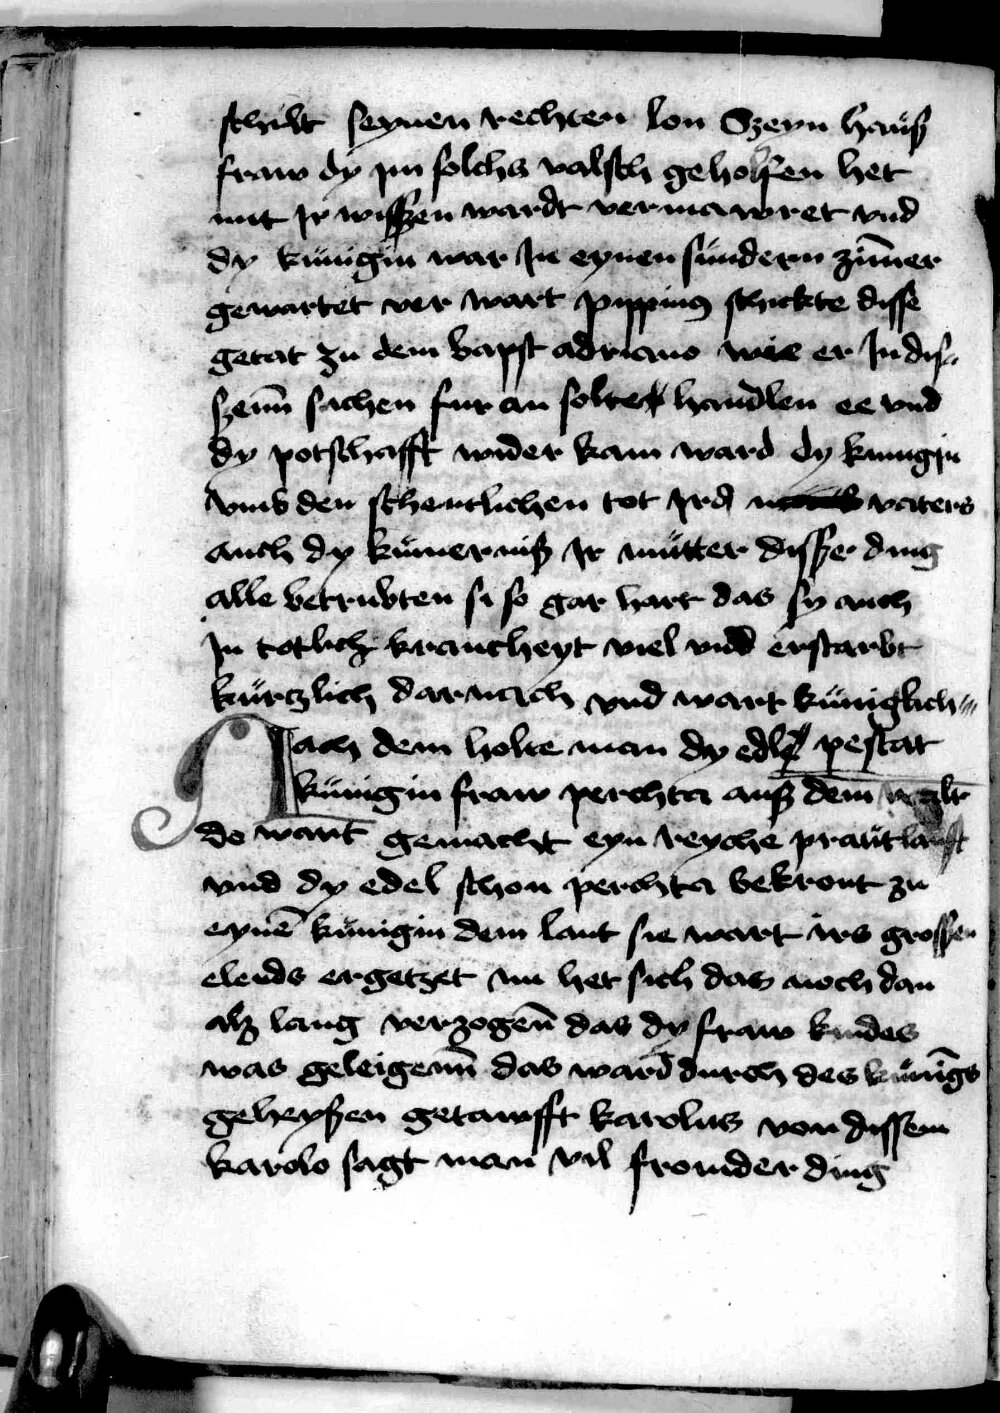 schult seynen rechten lon Szeyn hauß
fraw dy jm solchs valsch geholfen het
mit jr wißen wardt vermawret vnd
dy kunigin war In eynen sundern zimer
gewartet ver wart pippinus schickte disse
getat zu dem bapst adriano wie er In dis-
zenn sachen fur an solte handlen ee vnd
dy potschafft wider kam ward dy kunigin
vmb den schentlichen tot jrs vaters
auch dy kumerniß jr mutter disser ding
alle betrubten si so gar hart das sy auch
In totlich kranckheyt viel vnd erstarbt
kurtzlich darnach vnd wart kuniglich
Nach dem holte man dy edle pestat
kunigin fraw perchta auß dem walt
do wart gemacht eyn reyche prautlaufft
vnd dy edel schon perchta bekront zu
eynē kunigin dem lant sie wart irs grossen
elends ergetzet nu het sich das noch dan
alz lang verzogen̄ das dy fraw kindes
was geleigenn das ward durch des kunigs
geheyßen getawfft karolus von dissem
karolo sagt man vil fromder ding